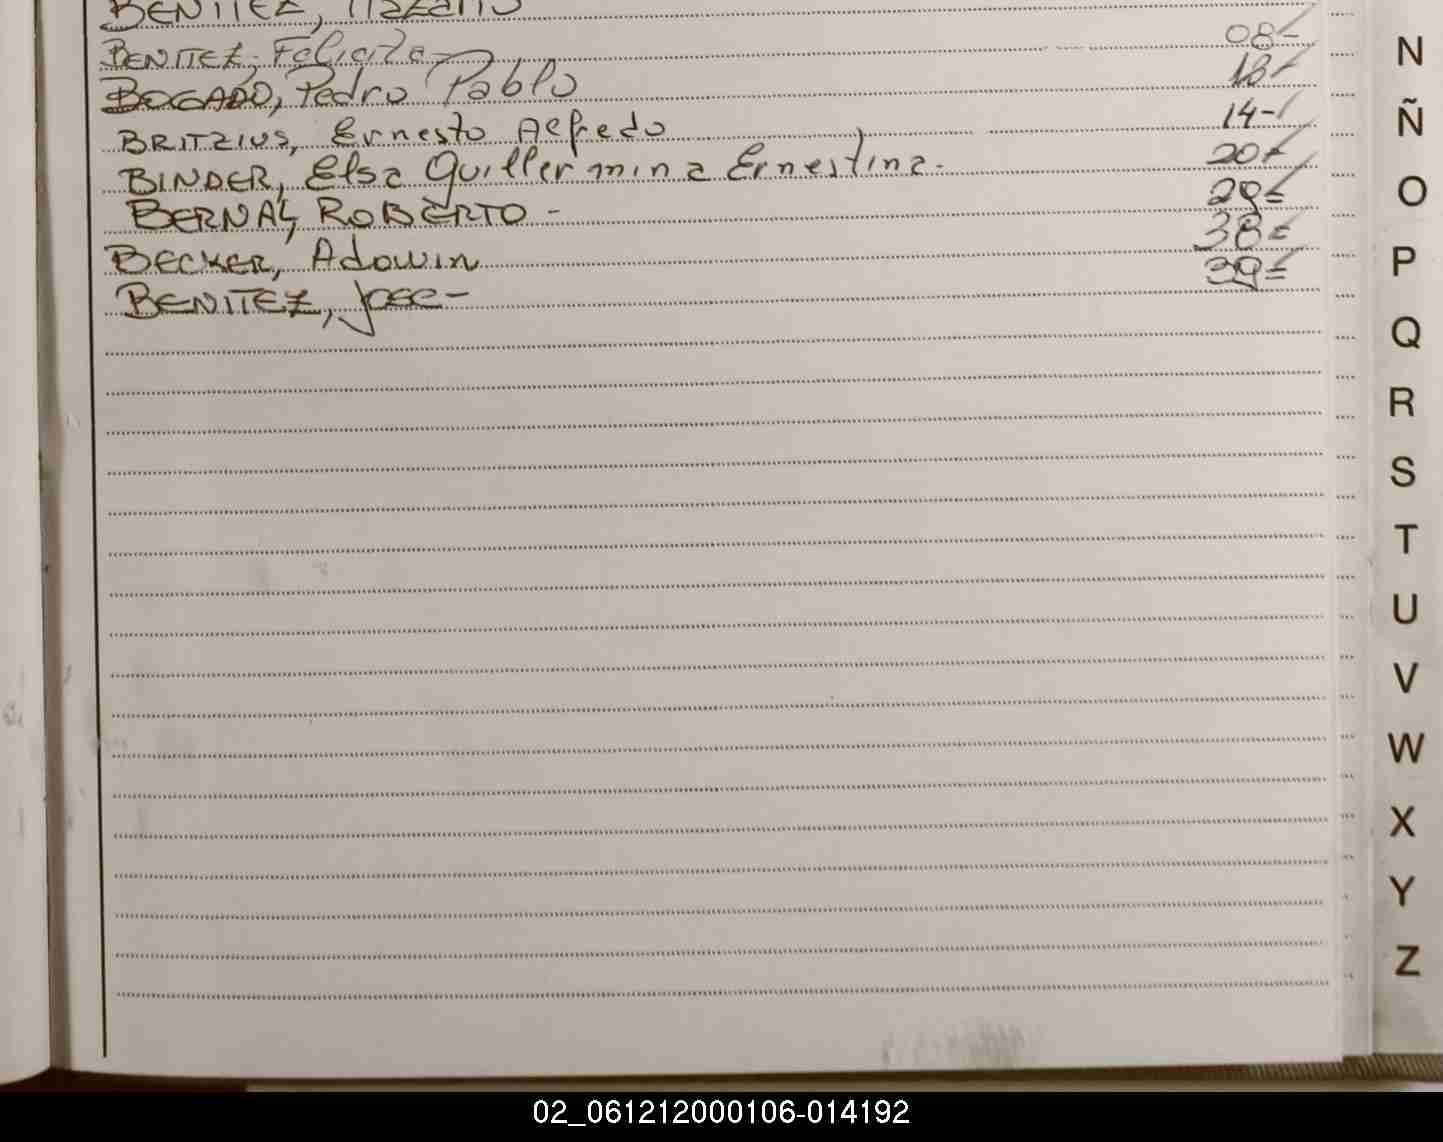 BENITEZ, Nazario
BENITEZ, Felicita 08-
BOGADO, Pedro Pablo 13-
BRITZIUS, Ernesto Alfredo 14-
BINDER, Elsa Guillermina Ernestina.- 20-
BERNAL, ROBERTO - 29=
BECKER, Adowin 38=
BENITEZ, Jose- 39=
N
Ñ
O
P
Q
R
S
T
U
V
W
X
Y
Z
02_061212000106-014192